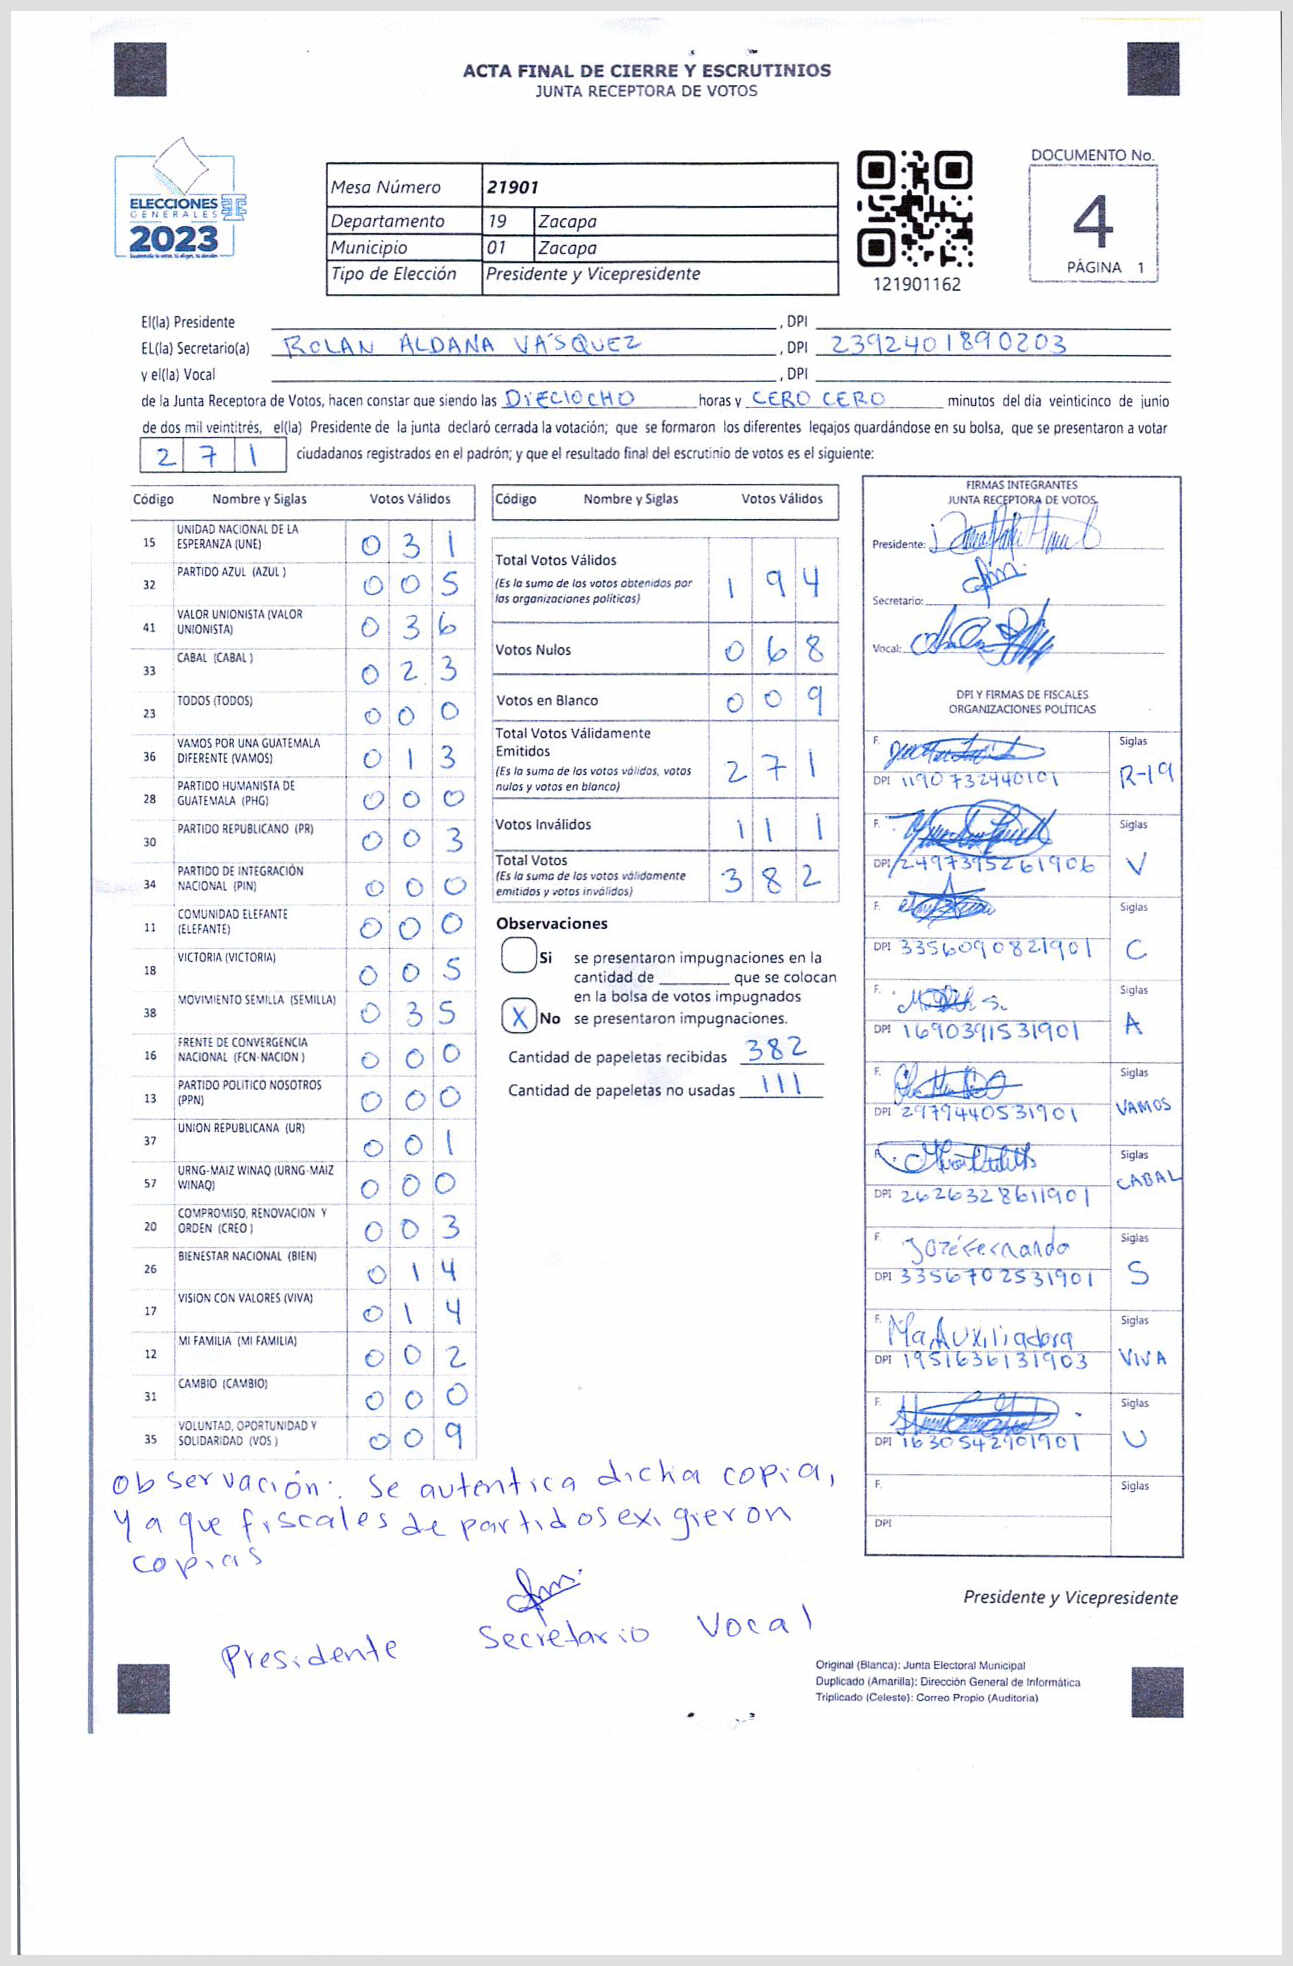 ACTA FINAL DE CIERRE Y ESCRUTINIOS
JUNTA RECEPTORA DE VOTOS
ELECCIONES
GENERALES
2023
Mesa Número 21901
Departamento 19 Zacapa
Municipio 01 Zacapa
Tipo de Elección Presidente y Vicepresidente
121901162
DOCUMENTO No.
4
PÁGINA 1
El(la) Presidente , DPI
EL(la) Secretario(a) ROLAN ALDANA VÁSQUEZ , DPI 2392401890203
y el(la) Vocal , DPI
de la Junta Receptora de Votos, hacen constar que siendo las DIECIOCHO horas y CERO CERO minutos del día veinticinco de junio
de dos mil veintitrés, el(la) Presidente de la junta declaró cerrada la votación; que se formaron los diferentes legajos guardándose en su bolsa, que se presentaron a votar
2 7 1 ciudadanos registrados en el padrón; y que el resultado final del escrutinio de votos es el siguiente:
Código Nombre y Siglas Votos Válidos
15 UNIDAD NACIONAL DE LA ESPERANZA (UNE) 0 3 1
32 PARTIDO AZUL (AZUL ) 0 0 5
41 VALOR UNIONISTA (VALOR UNIONISTA) 0 3 6
33 CABAL (CABAL ) 0 2 3
23 TODOS (TODOS) 0 0 0
36 VAMOS POR UNA GUATEMALA DIFERENTE (VAMOS) 0 1 3
28 PARTIDO HUMANISTA DE GUATEMALA (PHG) 0 0 0
30 PARTIDO REPUBLICANO (PR) 0 0 3
34 PARTIDO DE INTEGRACIÓN NACIONAL (PIN) 0 0 0
11 COMUNIDAD ELEFANTE (ELEFANTE) 0 0 0
18 VICTORIA (VICTORIA) 0 0 5
38 MOVIMIENTO SEMILLA (SEMILLA) 0 3 5
16 FRENTE DE CONVERGENCIA NACIONAL (FCN-NACION ) 0 0 0
13 PARTIDO POLITICO NOSOTROS (PPN) 0 0 0
37 UNION REPUBLICANA (UR) 0 0 1
57 URNG-MAIZ WINAQ (URNG-MAIZ WINAQ) 0 0 0
20 COMPROMISO, RENOVACION Y ORDEN (CREO ) 0 0 3
26 BIENESTAR NACIONAL (BIEN) 0 1 4
17 VISION CON VALORES (VIVA) 0 1 4
12 MI FAMILIA (MI FAMILIA) 0 0 2
31 CAMBIO (CAMBIO) 0 0 0
35 VOLUNTAD, OPORTUNIDAD Y SOLIDARIDAD (VOS ) 0 0 9
Código Nombre y Siglas Votos Válidos
Total Votos Válidos 1 9 4
(Es la suma de los votos obtenidos por
las organizaciones políticas)
Votos Nulos 0 6 8
Votos en Blanco 0 0 9
Total Votos Válidamente
Emitidos 2 7 1
(Es la suma de los votos válidos, votos
nulos y votos en blanco)
Votos Inválidos 1 1 1
Total Votos 3 8 2
(Es la suma de los votos válidamente
emitidos y votos inválidos)
Observaciones
Si se presentaron impugnaciones en la
cantidad de ________ que se colocan
en la bolsa de votos impugnados
X No se presentaron impugnaciones.
Cantidad de papeletas recibidas 382
Cantidad de papeletas no usadas 111
FIRMAS INTEGRANTES
JUNTA RECEPTORA DE VOTOS
Presidente:
Secretario:
Vocal:
DPI Y FIRMAS DE FISCALES
ORGANIZACIONES POLÍTICAS
F. Siglas
DPI 1190732440101 R-19
F. Siglas
DPI 2497395261906 V
F. Siglas
DPI 3356090821901 C
F. Siglas
DPI 1690391531901 A
F. Siglas
DPI 2979440531901 VAMOS
F. Siglas
DPI 2626328611901 CABAL
F. José Fernando Siglas
DPI 3356702531901 S
F. Ma. Auxiliadora Siglas
DPI 1951636131903 VIVA
F. Siglas
DPI 1630542901901 U
F. Siglas
DPI
Observación: Se autentica dicha copia,
ya que fiscales de partidos exigieron
copias
Presidente Secretario Vocal
Presidente y Vicepresidente
Original (Blanca): Junta Electoral Municipal
Duplicado (Amarilla): Dirección General de Informática
Triplicado (Celeste): Correo Propio (Auditoria)